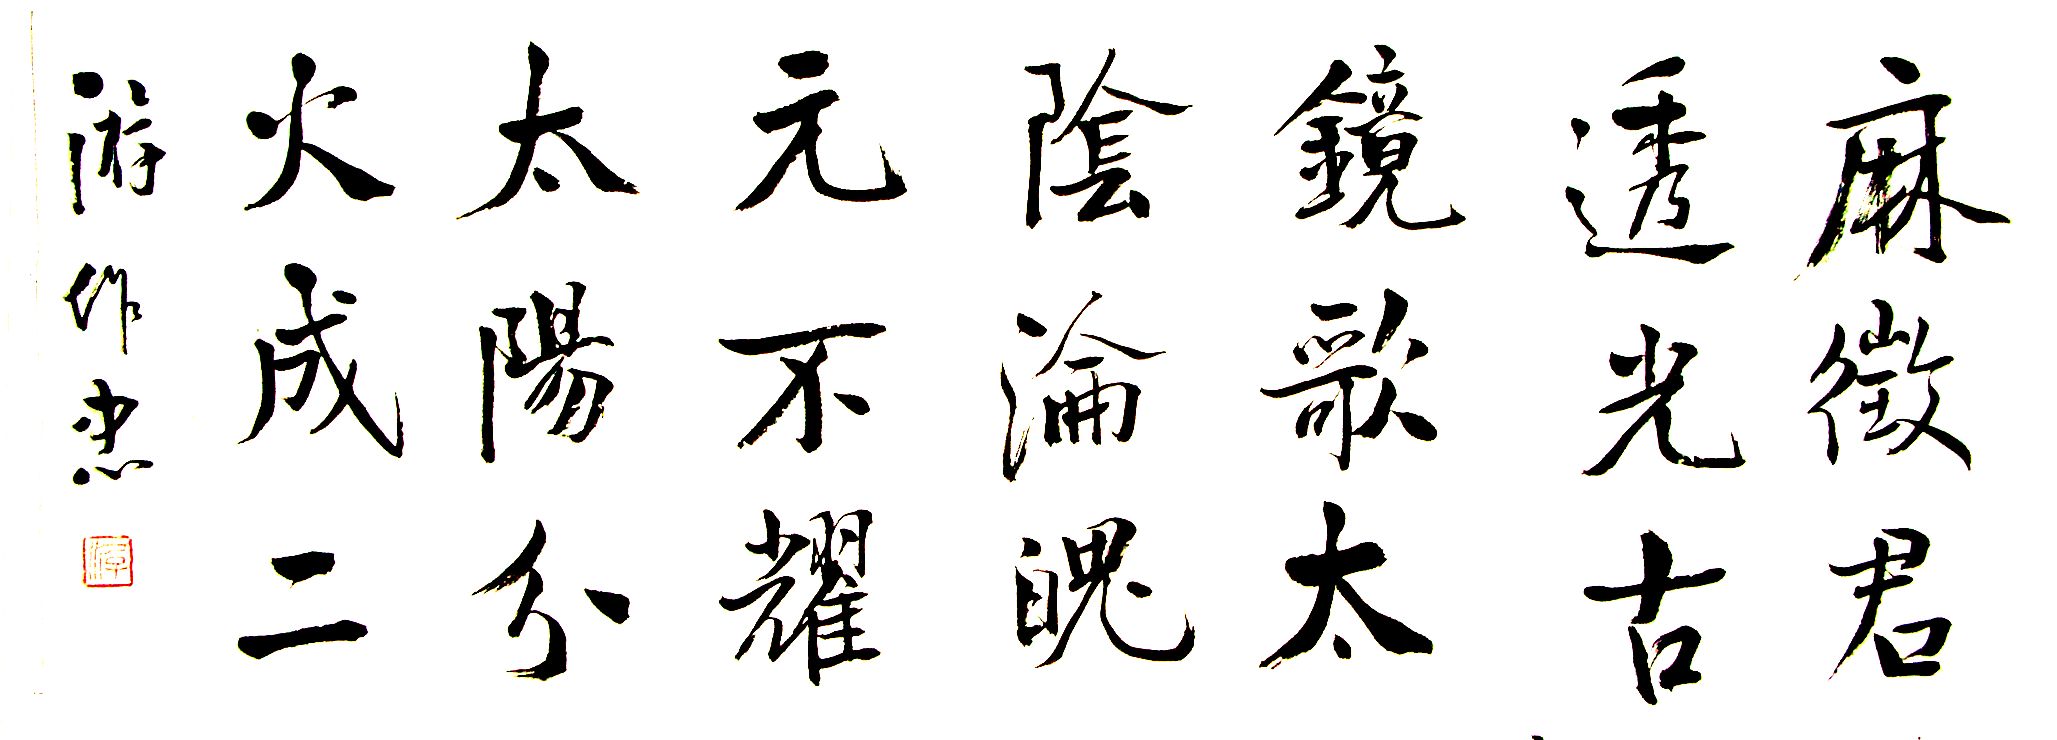 麻徵君
透光古
鏡歌太
陰淪魄
元不耀
太陽分
火成二
游作忠